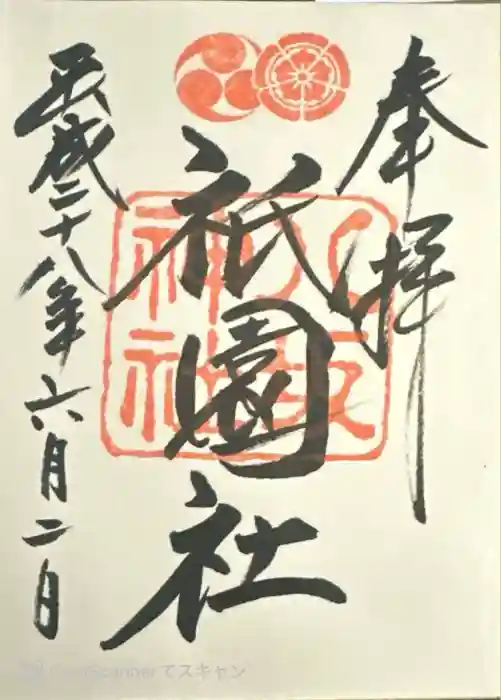 奉拝
祇園社
八坂
神社
平成二十八年六月二日
CamScannerでスキャン